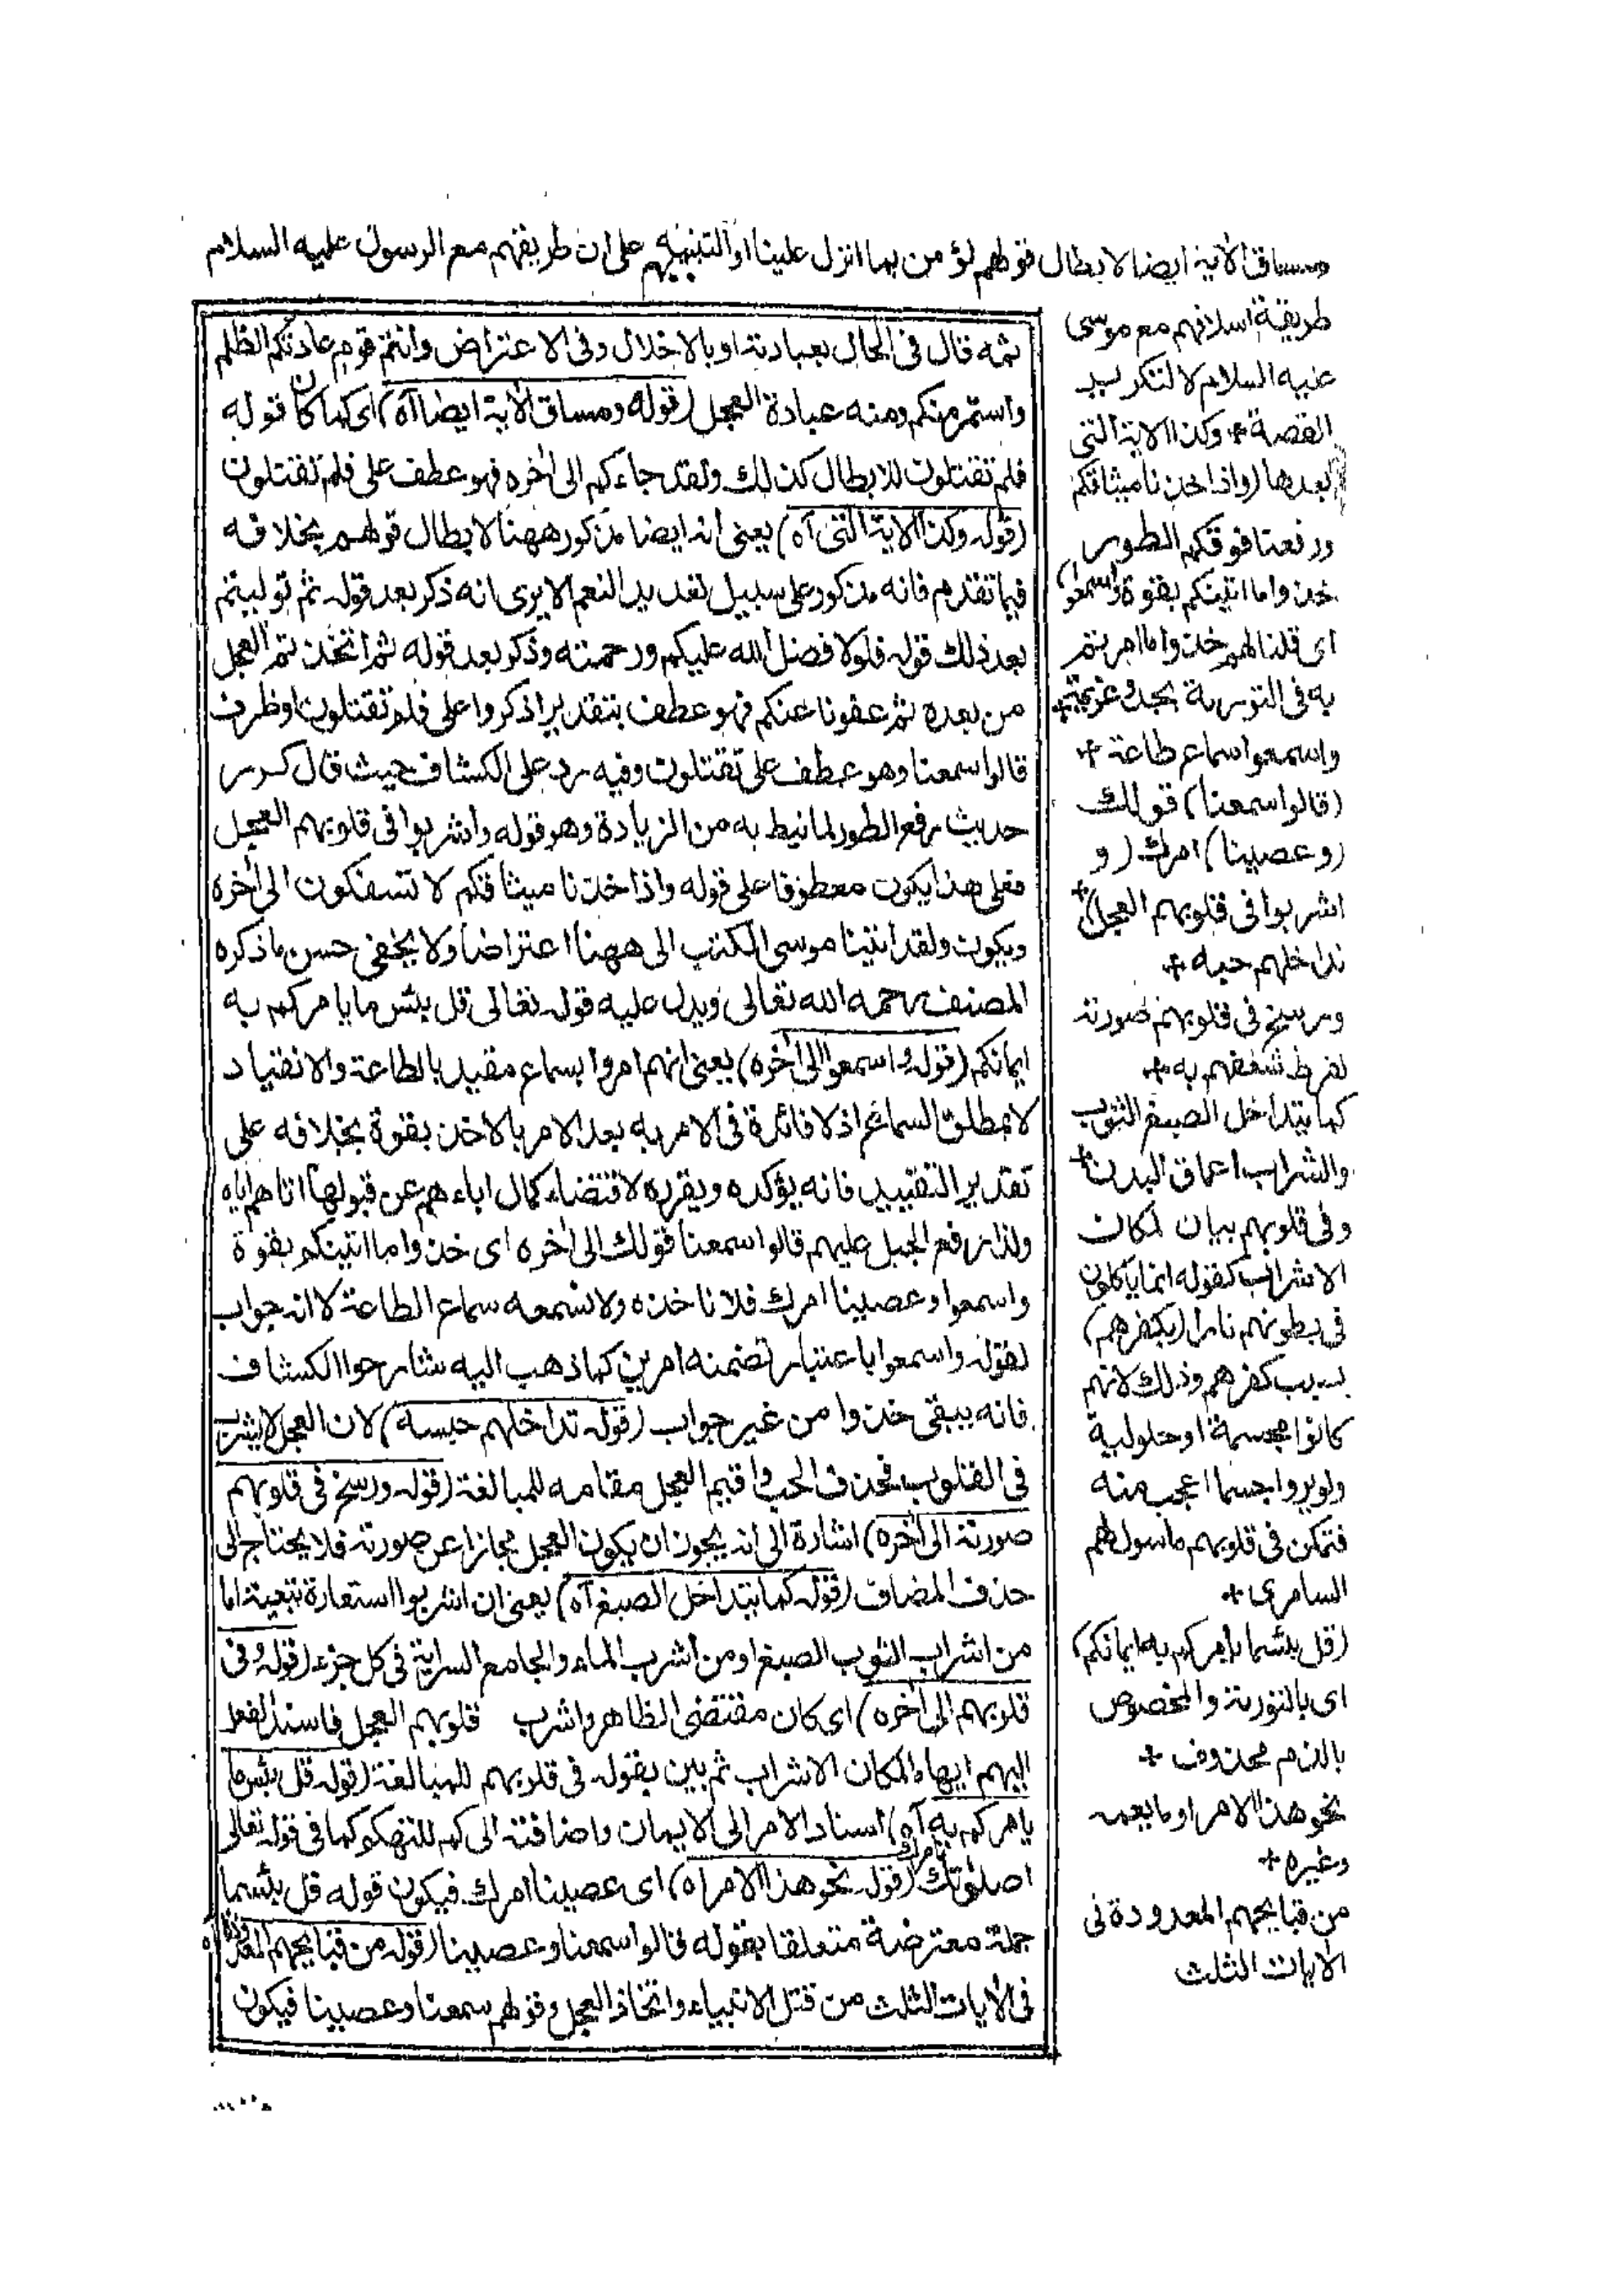 ومساق الآية ايضا لابطال قولهم نؤمن بما انزل علينا او التنبيه على ان طريقتهم مع الرسول عليه السلام
طريقة اسلافهم مع موسى
عليه السلام لا لتكرير
القصة + وكذا الآية التى
بعدها (واذ اخذنا ميثاقكم
ورفعنا فوقكم الطور
خذوا ما اتينكم بقوة واسمعوا)
اى قلنا لهم خذوا ما امرتم
به فى التورية بجد وعزيمة +
واسمعوا سماع طاعة +
(قالوا سمعنا) قولك
(وعصينا) امرك (و
اشربوا فى قلوبهم العجل) +
تداخلهم حبه +
ورسخ فى قلوبهم صورته
لفرط شغفهم به +
كما يتداخل الصبغ الثوب
والشراب اعماق البدن +
وفى قلوبهم بيان لمكان
الاشراب كقوله انما ياكلون
فى بطونهم نارا (بكفرهم)
بسبب كفرهم وذلك لانهم
كانوا مجسمة او حلولية
ولم يروا جسما اعجب منه
فتمكن فى قلوبهم ما سول لهم
السامرى +
(قل بئسما يامركم به ايمانكم)
اى بالتورية والمخصوص
بالذم محذوف +
نحو هذا الامر او ما يعمه
وغيره +
من قبايحهم المعدودة فى
الآيات الثلث
ثمه قال فى الحال بعبادته او بالاخلال وفى الاعتراض وانتم قوم عادتكم الظلم
واستمر منكم ومنه عبادة العجل (قوله ومساق الآية ايضا آه) اى كما كان قوله
فلم تقتلون للابطال كذلك ولقد جاءكم الى آخره فهو عطف على فلم تقتلون
(قوله وكذا الآية التى آه) يعنى انه ايضا مذكور ههنا لابطال قولهم بخلافه
فيما تقدم فانه مذكور على سبيل تعديد النعم الا يرى انه ذكر بعد قوله ثم توليتم
بعد ذلك قوله فلولا فضل الله عليكم ورحمته وذكر بعد قوله ثم اتخذتم العجل
من بعده ثم عفونا عنكم فهو عطف بتقدير اذكروا على فلم تقتلون او ظرف
قالوا سمعنا وهو عطف على تقتلون وفيه رد على الكشاف حيث قال كرر
حديث رفع الطور لما نيط به من الزيادة وهو قوله واشربوا فى قلوبهم العجل
فعلى هذا يكون معطوفا على قوله واذ اخذنا ميثاقكم لا تسفكون الى آخره
ويكون ولقد اتينا موسى الكتب الى ههنا اعتراضا ولا يخفى حسن ما ذكره
المصنف رحمه الله تعالى ويدل عليه قوله تعالى قل بئس ما يامركم به
ايمانكم (قوله واسمعوا الى آخره) يعنى انهم امروا بسماع مقيد بالطاعة والانقياد
لا بمطلق السماع اذ لا فائدة فى الامر به بعد الامر بالاخذ بقوة بخلافه على
تقدير التقييد فانه يؤكده ويقرره لاقتضاء كمال اباءهم عن قبولها اتاهم اياه
ولذا رفع الجبل عليهم قالوا سمعنا قولك الى آخره اى خذوا ما اتينكم بقوة
واسمعوا وعصينا امرك فلا ناخذه ولا نسمعه سماع الطاعة لا انه جواب
لقوله واسمعوا باعتبار تضمنه امرين كما ذهب اليه شارحوا الكشاف
فانه يبقى خذوا من غير جواب (قوله تداخلهم حبه) لان العجل لا يشرب
فى القلوب فحذف الحب واقيم العجل مقامه للمبالغة (قوله ورسخ فى قلوبهم
صورته الى آخره) اشارة الى انه يجوز ان يكون العجل مجازا عن صورته فلا يحتاج الى
حذف المضاف (قوله كما يتداخل الصبغ آه) يعنى ان اشربوا استعارة تبعية اما
من اشراب الثوب الصبغ او من اشرب الماء والجامع السراية فى كل جزء (قوله وفى
قلوبهم الى آخره) اى كان مقتضى الظاهر واشرب قلوبهم العجل فاسند الفعل
اليهم ايهاما لمكان الاشراب ثم بين بقوله فى قلوبهم للمبالغة (قوله قل بئس ما
يامركم به آه) اسناد الامر الى الايمان واضافته الى كم للتهكم كما فى قوله تعالى
اصلوتك تامرك (قوله نحو هذا الامر آه) اى عصينا امرك فيكون قوله قل بئسما
جملة معترضة متعلقا بقوله قالوا سمعنا وعصينا (قوله من قبايحهم المعدودة آه
فى الآيات الثلث من قتل الانبياء واتخاذ العجل وقولهم سمعنا وعصينا فيكون